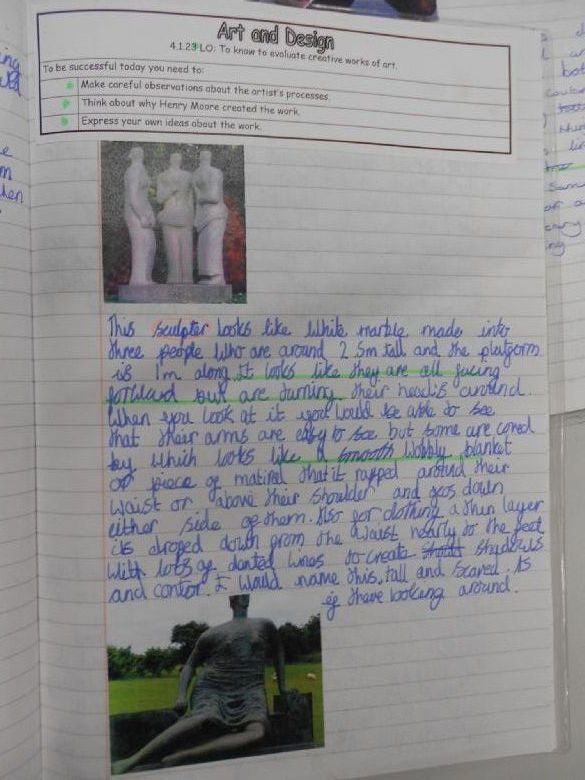 Art and Design
4.1.23 LO: To know to evaluate creative works of art.
To be successful today you need to:
Make careful observations about the artist's processes.
Think about why Henry Moore created the work.
Express your own ideas about the work.
This sculpter looks like white marble made into
three people who are around 2.5m tall and the platform
is 1m along. It looks like they are all facing
forward but are turning their head's around.
When you look at it you would be able to see
that their arms are easy to see but some are coverd
by which looks like a smooth wobbly blanket
or piece of matirel that it rapped around their
waist or above their shoulder and gos down
either side of them. Also for clothing a thin layer
is droped down from the waist nearly to the feet
with lots of dented lines to create shadows
and contor. I would name this, tall and scared. As
if there looking around.